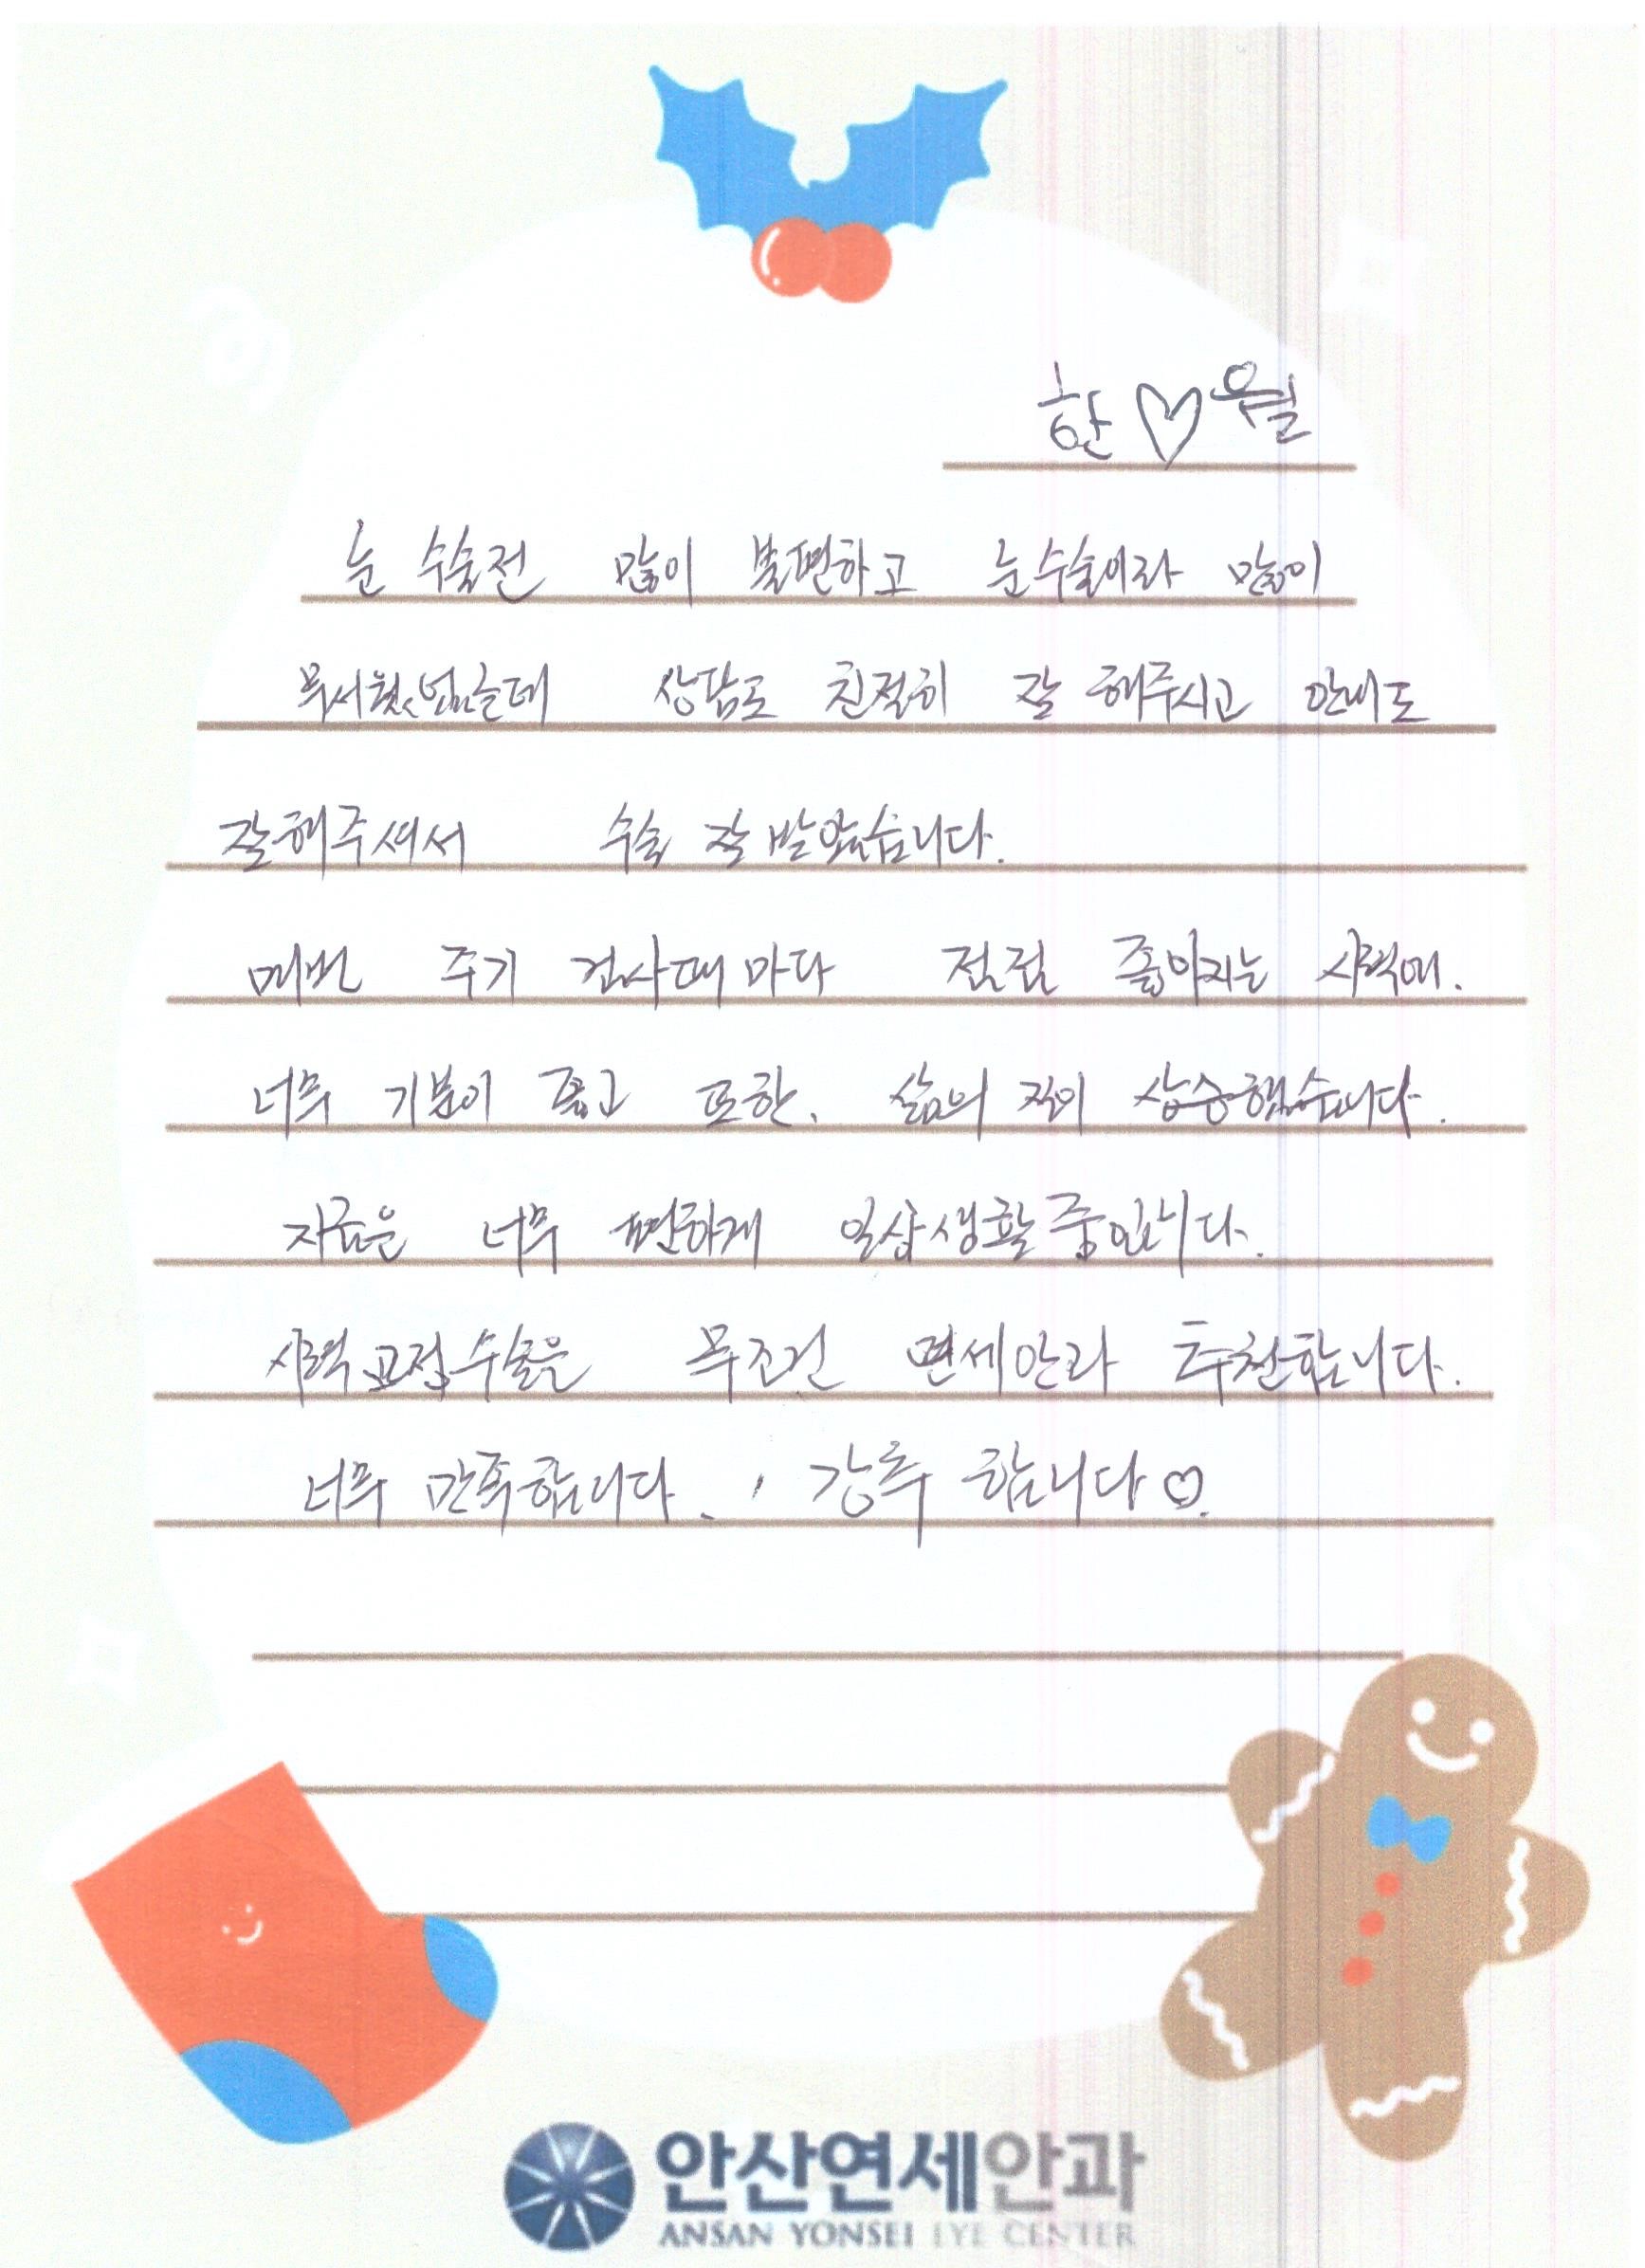 한♡월
눈 수술전 많이 불편하고 눈수술이라 많이
무서웠었는데 상담도 친절히 잘 해주시고 안내도
잘해주셔서 수술 잘 받았습니다.
매번 주기 검사때마다 점점 좋아지는 시력에.
너무 기분이 좋고 또한. 삶의 질이 상승했습니다.
지금은 너무 편하게 일상생활중입니다.
시력교정수술은 무조건 연세안과 추천합니다.
너무 만족합니다. 강추 합니다♡.
안산연세안과
ANSAN YONSEI EYE CENTER